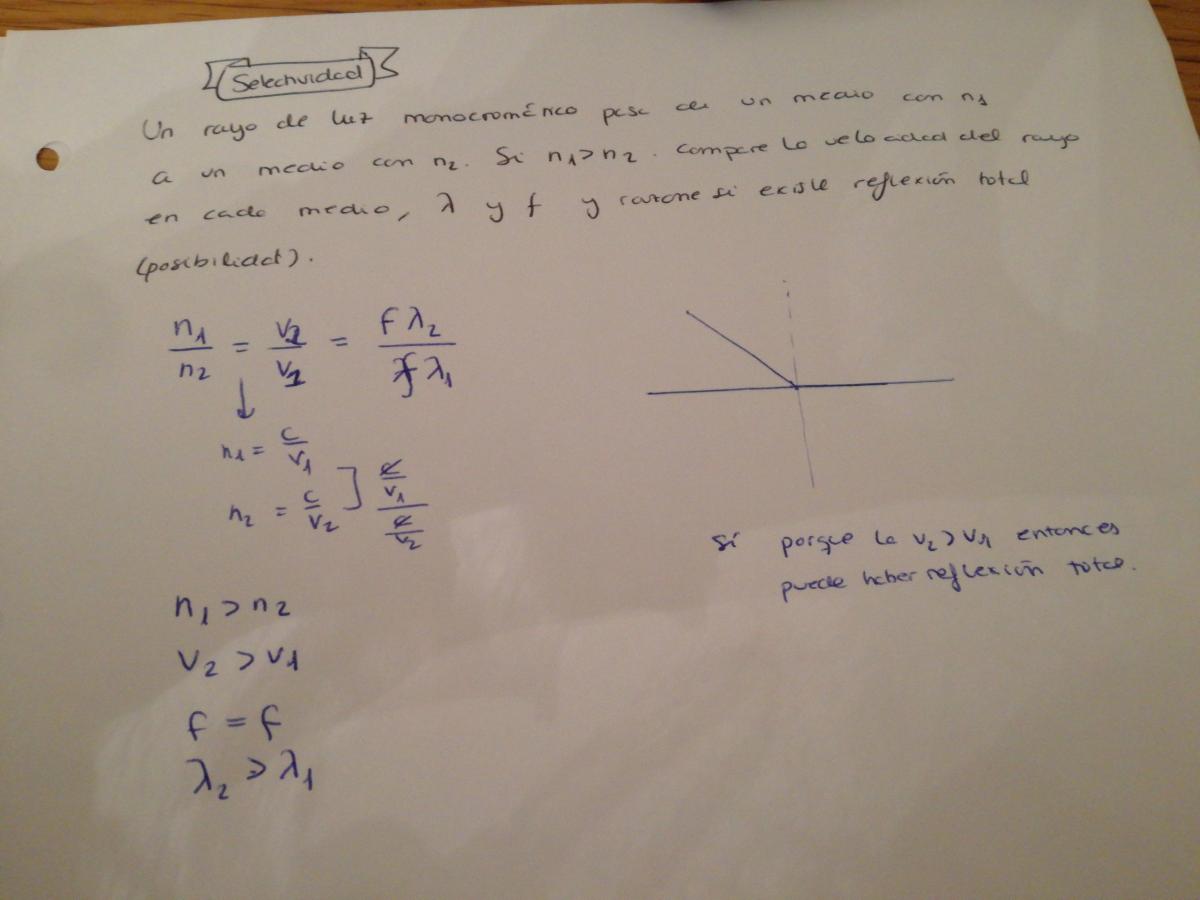 Selectividad
Un rayo de luz monocromático pasa de un medio con n₁
a un medio con n₂. Si n₁>n₂. Compare la velocidad del rayo
en cada medio, λ y f y razone si existe reflexión total
(posibilidad).
n₁/n₂ = v₂/v₁ = f λ₂/f λ₁
↓
n₁ = c/v₁
n₂ = c/v₂ ] (c/v₁)/(c/v₂)
Sí porque la v₂>v₁ entonces
puede haber reflexión total.
n₁ > n₂
v₂ > v₁
f = f
λ₂ > λ₁